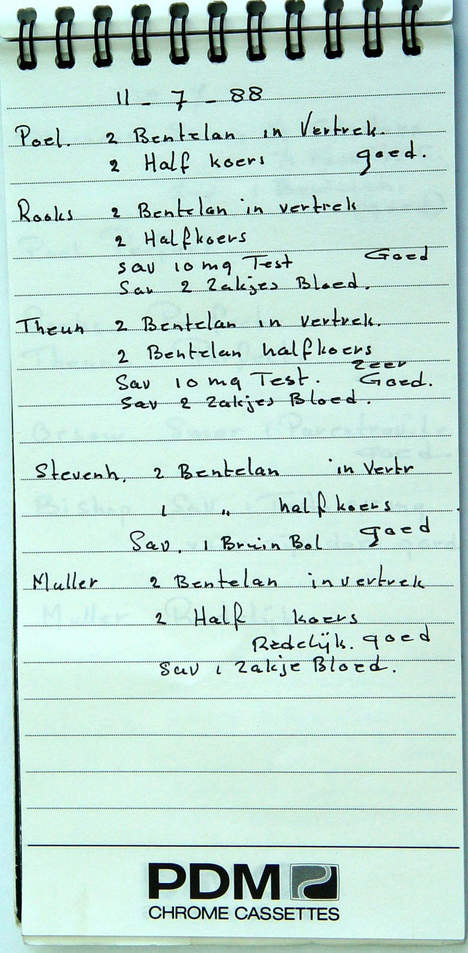 11 - 7 - 88
Poel. 2 Bentelan in Vertrek.
2 Half koers goed.
Rooks 2 Bentelan in vertrek
2 Halfkoers
sav 10 mg Test Goed
Sav 2 Zakjes Bloed.
Theun 2 Bentelan in vertrek.
2 Bentelan halfkoers
zeer
Sav 10 mg Test. Goed.
Sav 2 Zakjes Bloed.
Stevenh. 2 Bentelan in Vertr
1 " half koers
goed
Sav. 1 Bruin Bol
Muller 2 Bentelan in vertrek
2 Half koers
Redelijk. goed
Sav 1 Zakje Bloed.
PDM
CHROME CASSETTES